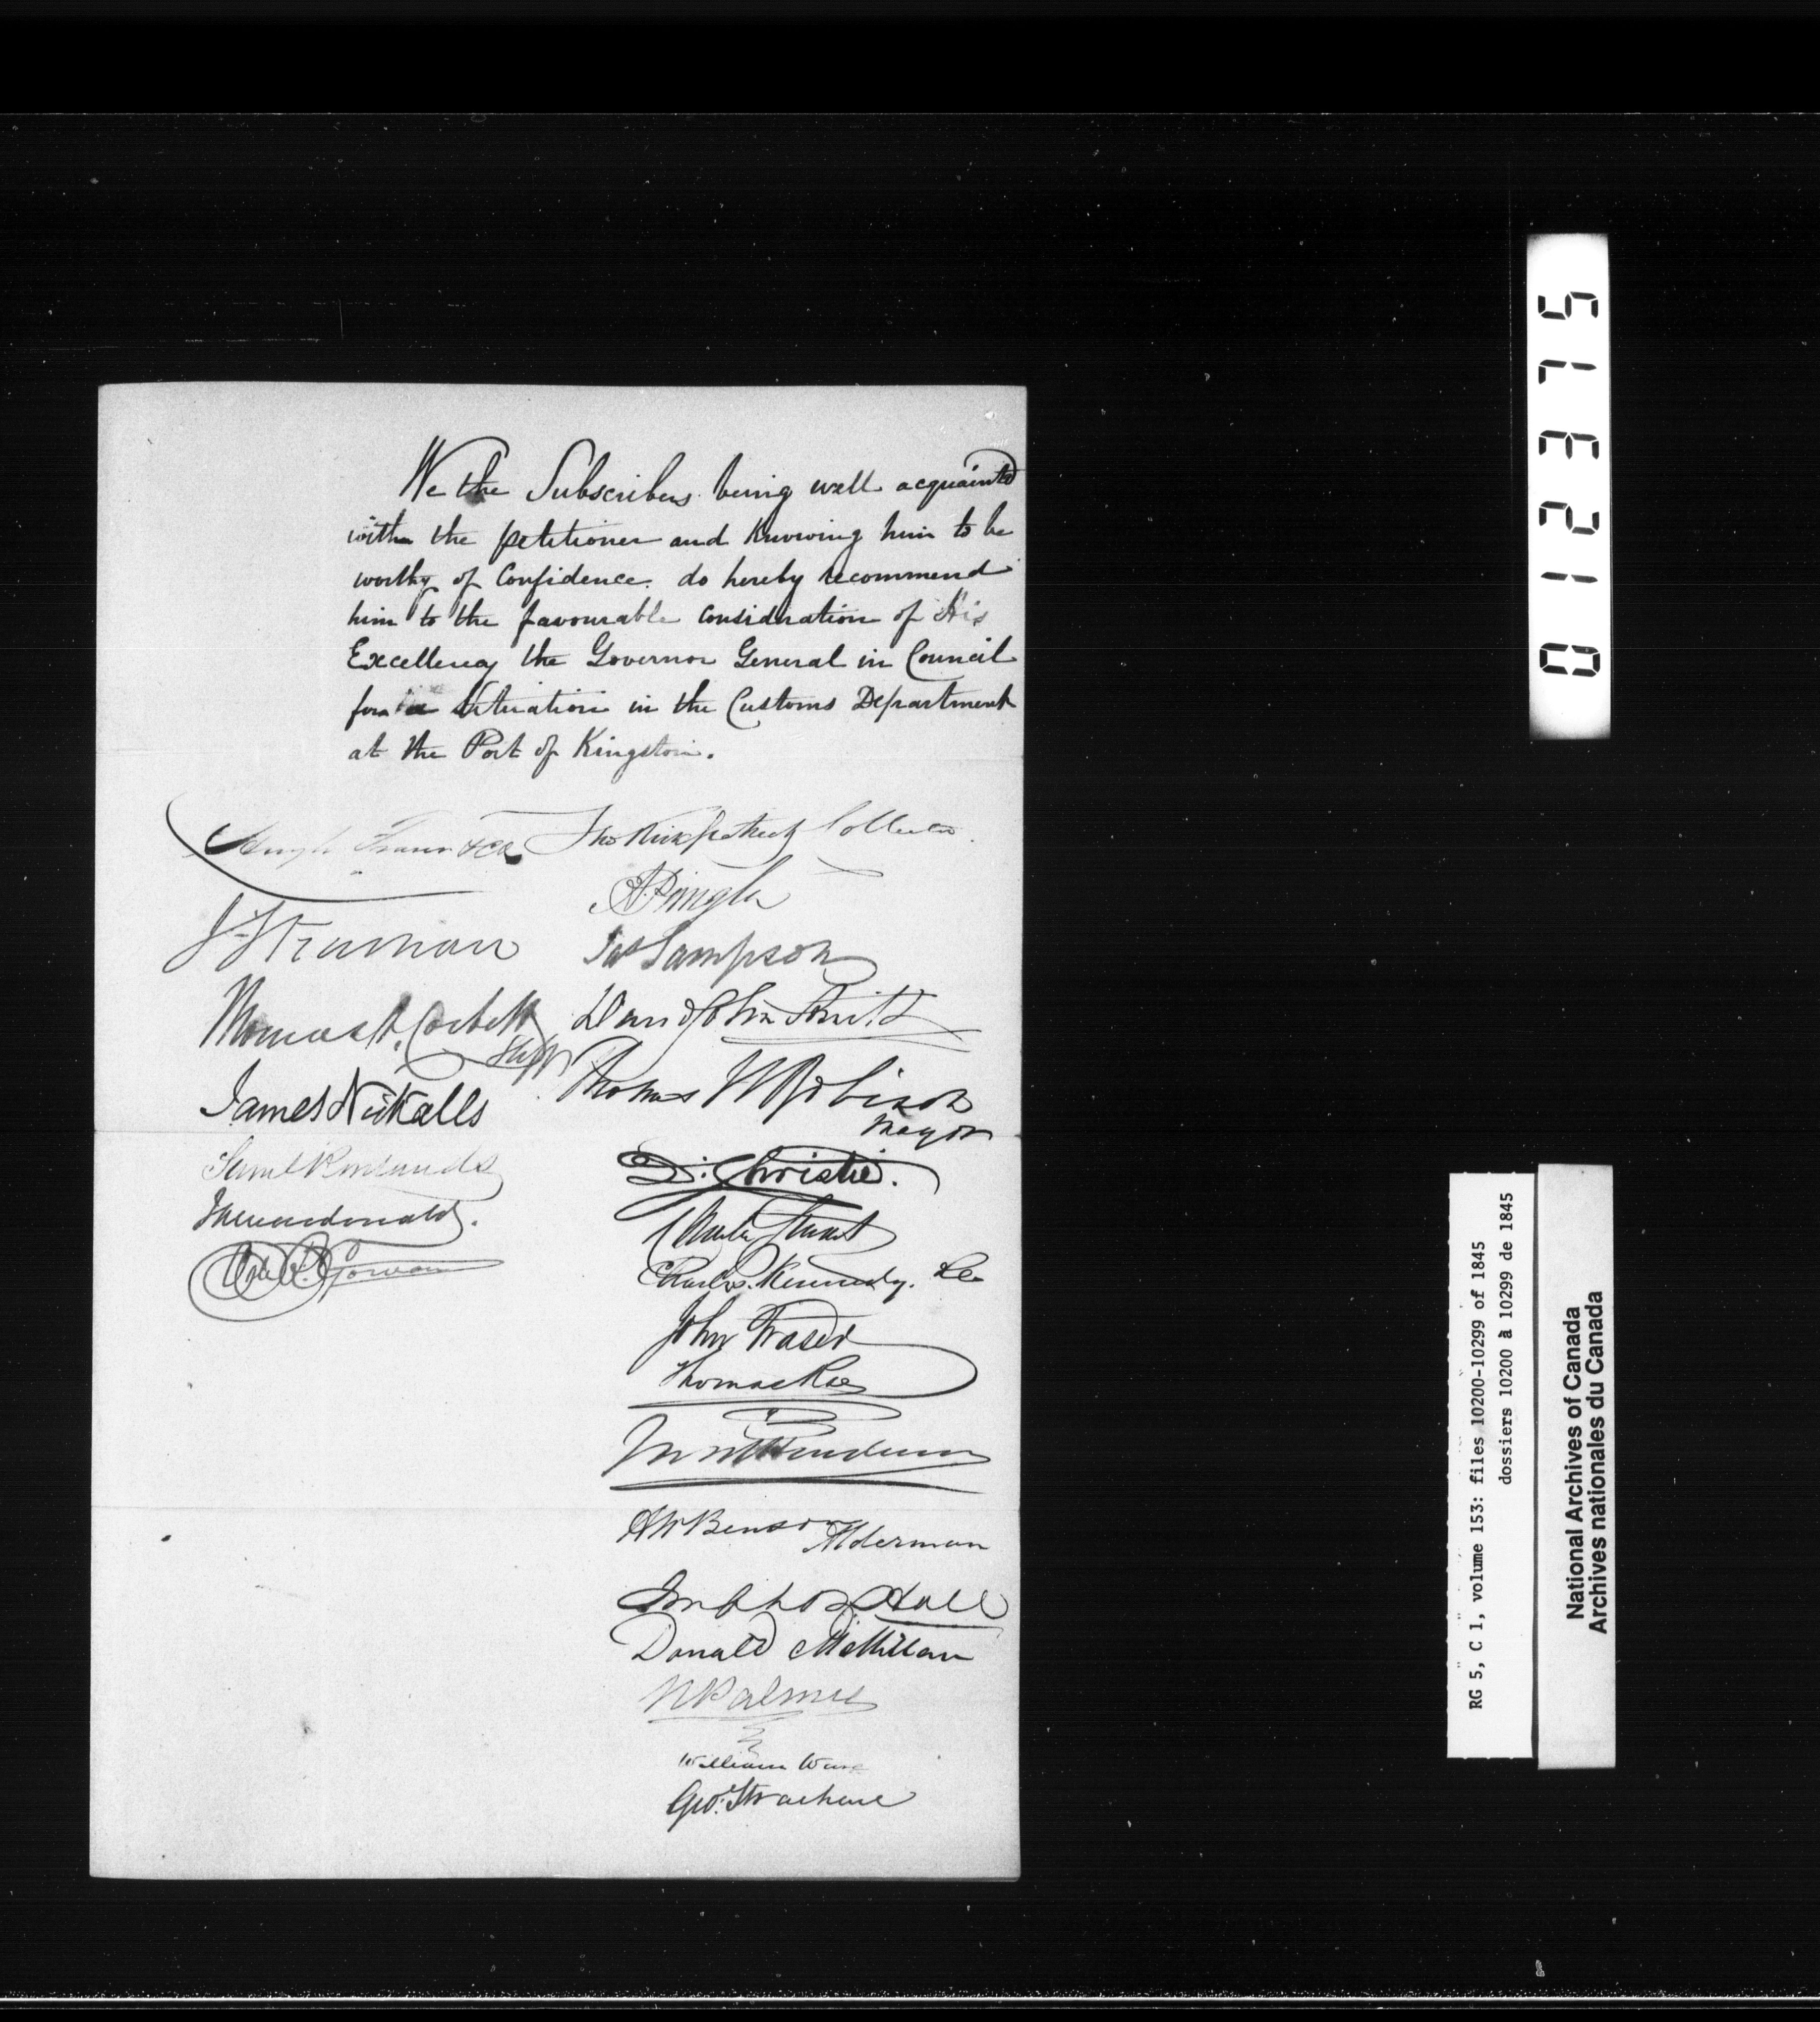 We the Subscribers being well acquainted
with the petitioner and Knowing him to be
worthy of Confidence. do hereby recommend
him to the favourable Consideration of His
Excellency the Governor General in Council
for a Situation in the Customs Department
at the Port of Kingston.
Thos Kirkpatrick Collector
A. Pringle
Jas Sampson
David John Smith
Thomas W Robison
Mayor
D. Christie.
Charles Stuart
Charles. Kennedy.
John Fraser
Thomas Rae
AW Benson Alderman
Hall
Donald McMillan
N Palmer
William Ware
Geo. Strachan
Thomas A. Corbett
Shff
James Nickalls
Saml Rowlands
Macdonald.
012375
RG 5, C 1, volume 153: files 10200-10299 of 1845
dossiers 10200 à 10299 de 1845
National Archives of Canada
Archives nationales du Canada